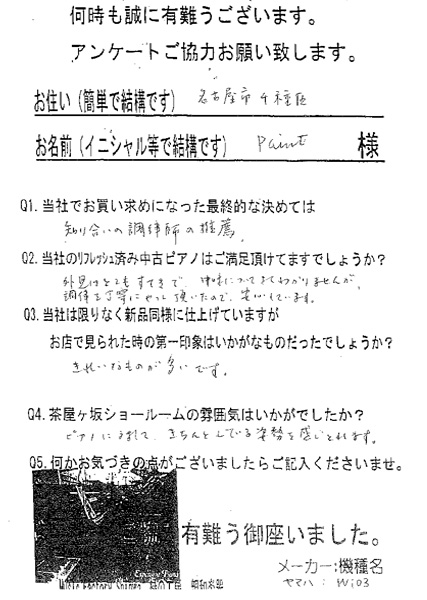 何時も誠に有難うございます。
アンケートご協力お願い致します。
お住い（簡単で結構です） 名古屋市千種区
お名前（イニシャル等で結構です） 様
Q1. 当社でお買い求めになった最終的な決めては
知り合いの調律師の推薦
Q2. 当社のリフレッシュ済み中古ピアノはご満足頂けてますでしょうか？
外見はとてもすてきで、中味についてはわかりませんが、
調律も丁寧にやって頂いたので、安心しています。
Q3. 当社は限りなく新品同様に仕上げていますが
お店で見られた時の第一印象はいかがなものだったでしょうか？
きれいなものが多いです。
Q4. 茶屋ヶ坂ショールームの雰囲気はいかがでしたか？
ピアノに きちんと いる姿勢を感じとれます。
Q5. 何かお気づきの点がございましたらご記入くださいませ。
有難う御座いました。
メーカー：機種名
ヤマハ：Wi03